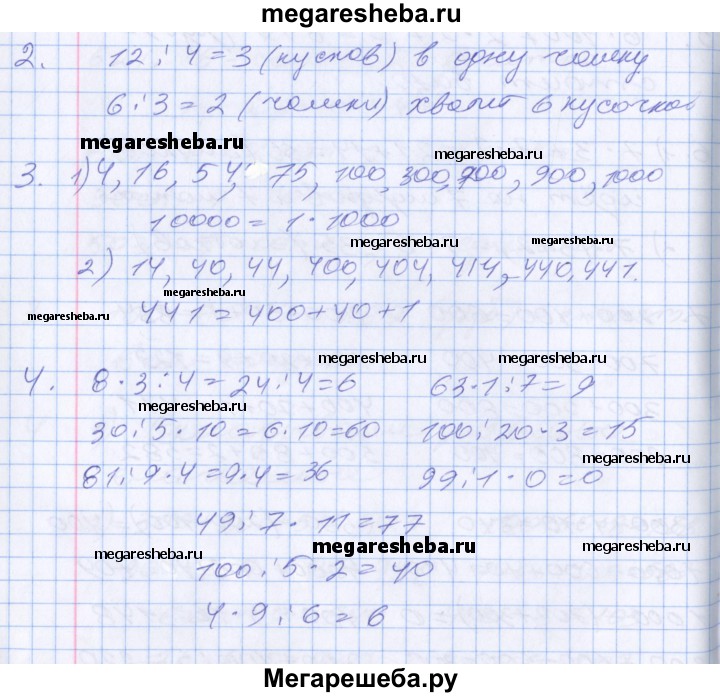 megaresheba.ru
2. 12 : 4 = 3 (кусков) в одну чашку
6 : 3 = 2 (чашки) хватит 6 кусочков
megaresheba.ru
megaresheba.ru
3. 1) 4, 16, 54, 75, 100, 300, 700, 900, 1000
10000 = 1 · 1000
megaresheba.ru
megaresheba.ru
2) 14, 40, 44, 400, 404, 414, 440, 441.
megaresheba.ru
441 = 400 + 40 + 1
megaresheba.ru
megaresheba.ru
megaresheba.ru
4. 8 · 3 : 4 = 24 : 4 = 6 63 · 1 : 7 = 9
megaresheba.ru
30 : 5 · 10 = 6 · 10 = 60 100 : 20 · 3 = 15
megaresheba.ru
81 : 9 · 4 = 9 · 4 = 36 99 : 1 · 0 = 0
49 : 7 · 11 = 77
megaresheba.ru
megaresheba.ru
megaresheba.ru
100 : 5 · 2 = 40
4 · 9 : 6 = 6
Мегарешеба.ру